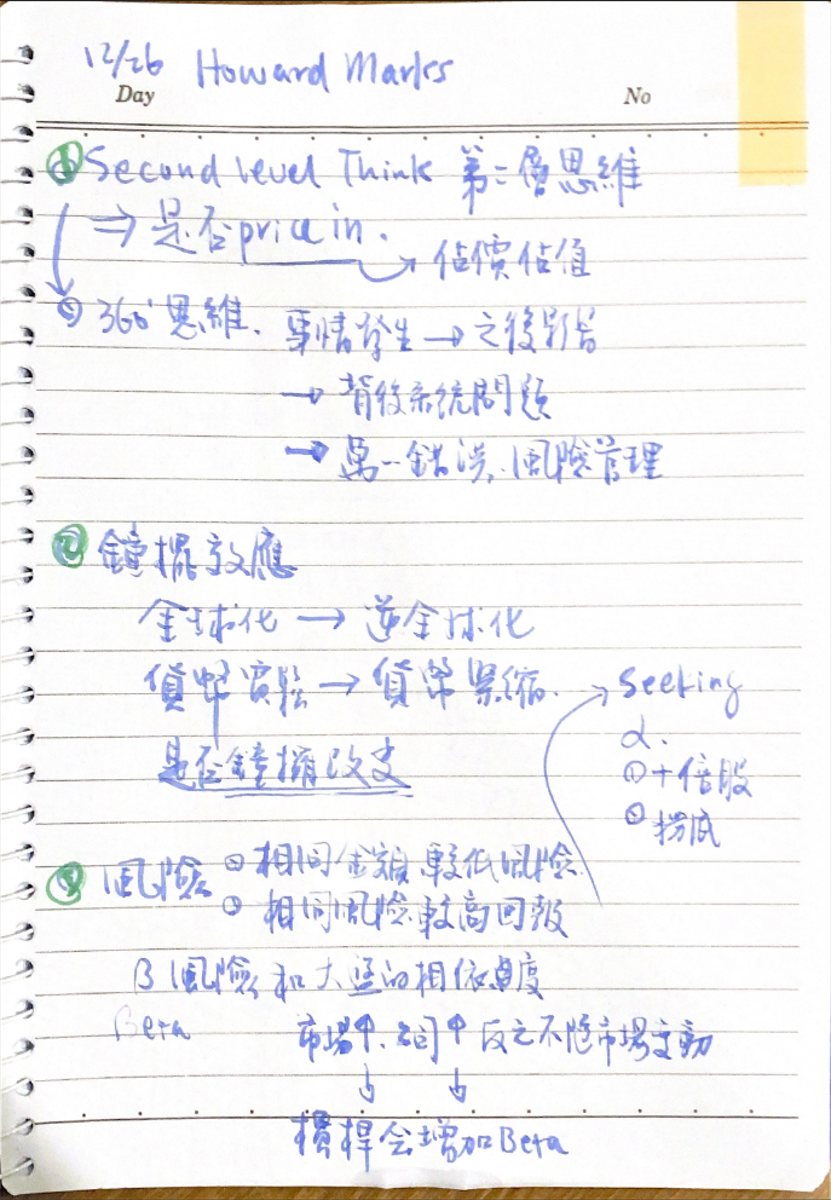 12/26 Howard Marks
Day No
① Second level Think 第二層思維
⇒ 是否 price in.
→ 估價估值
② 360° 思維. 事情發生 → 之後影响
→ 背後系統問題
→ 萬一錯誤、風險管理
② 鐘擺效應
全球化 → 逆全球化
貨幣寬鬆 → 貨幣緊縮.
是否鐘擺改变
→ Seeking
α.
① 十倍股
② 撈底
③ 風險 ① 相同金額較低風險
② 相同風險較高回報
β 風險和大盤的相依度
Beta
市場↑. 公司↑ 反之不隨市場变動
↓ ↓
槓桿会增加Beta